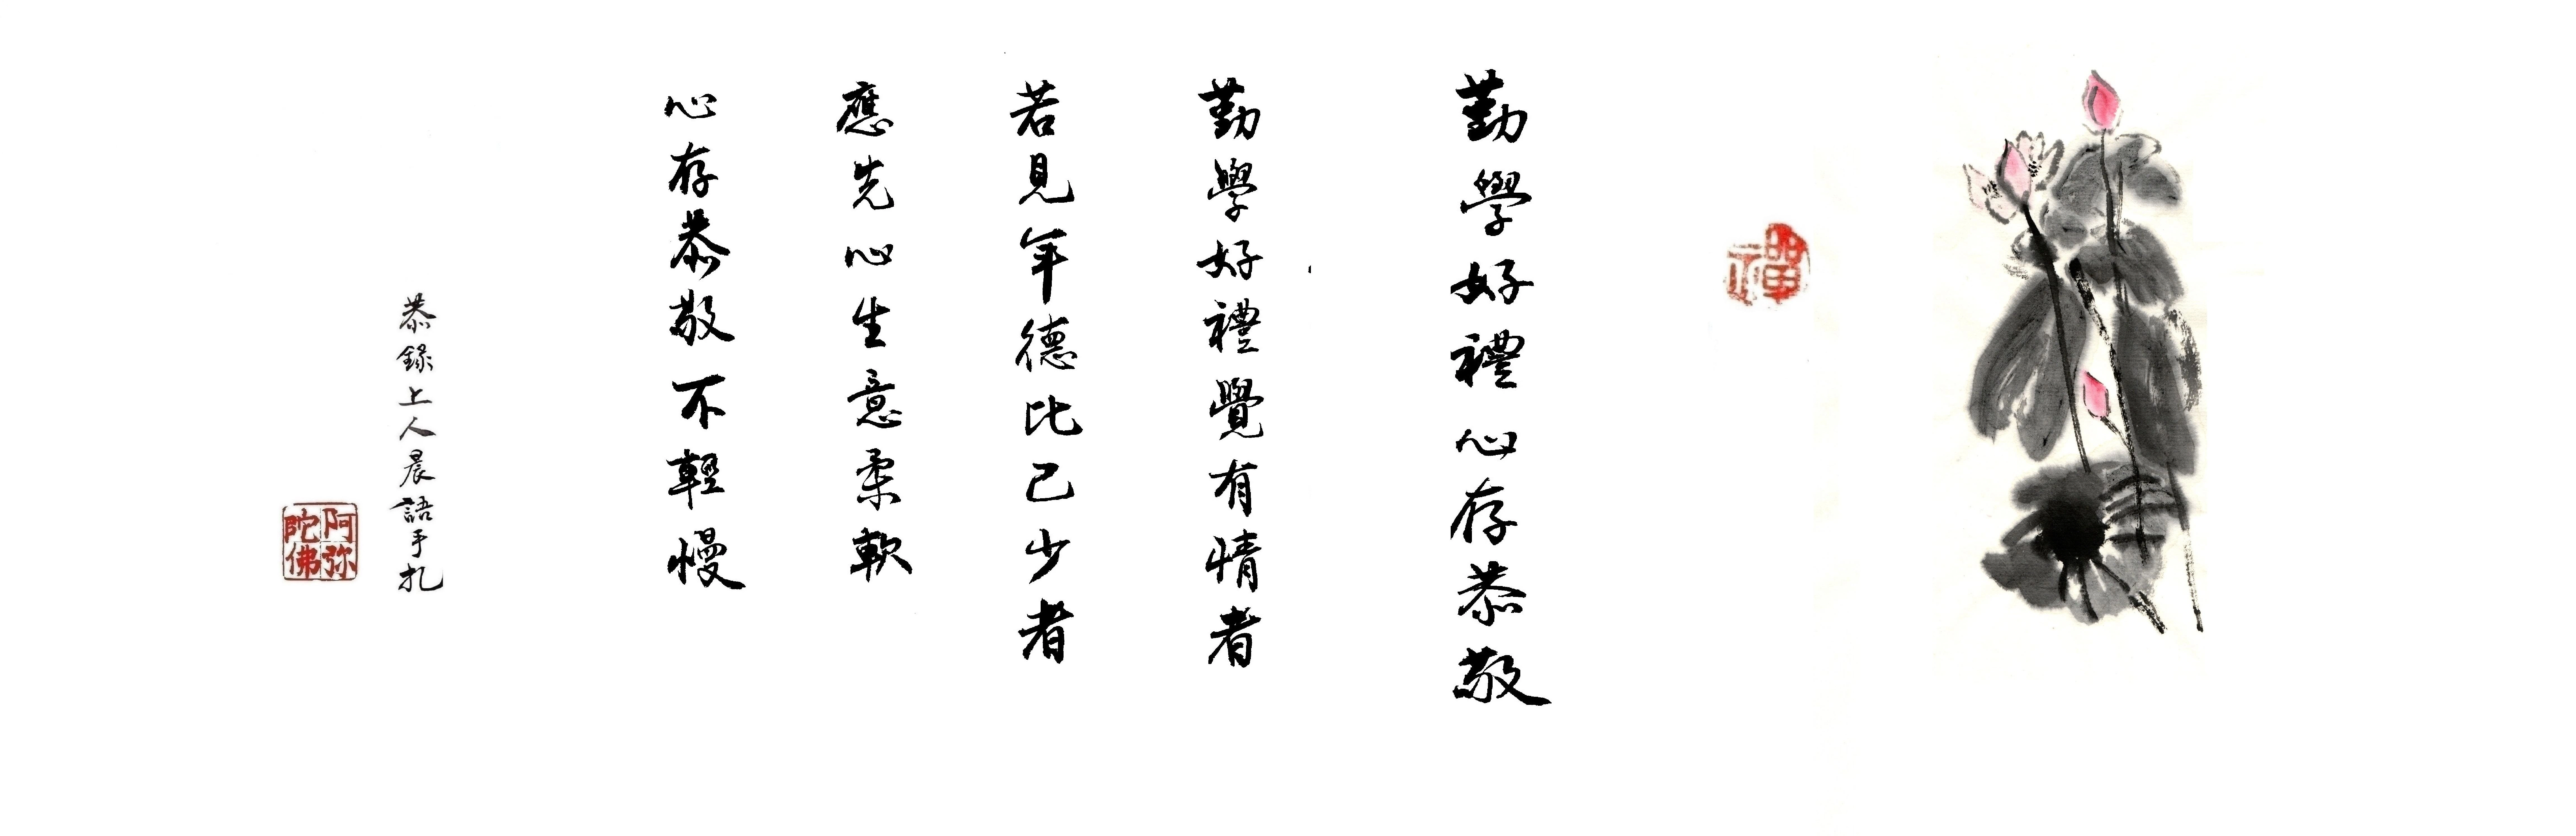 禪
勤學好禮心存恭敬
勤學好禮覺有情者
若見年德比己少者
應先心生意柔軟
心存恭敬不輕慢
恭錄上人晨語手札
阿弥陀佛